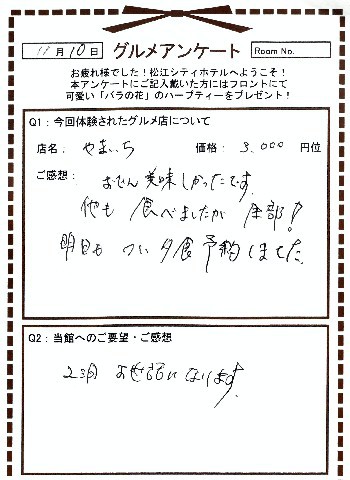 11月10日 グルメアンケート Room No.
お疲れ様でした!松江シティホテルへようこそ!
本アンケートにご記入戴いた方にはフロントにて
可愛い「バラの花」のハーブティーをプレゼント!
Q1:今回体験されたグルメ店について
店名: やまいち 価格: 3,000 円位
ご感想: おでん美味しかったです。
他も 食べましたが 全部!
明日も つい夕食予約しました。
Q2:当館へのご要望・ご感想
2泊 お世話になります。